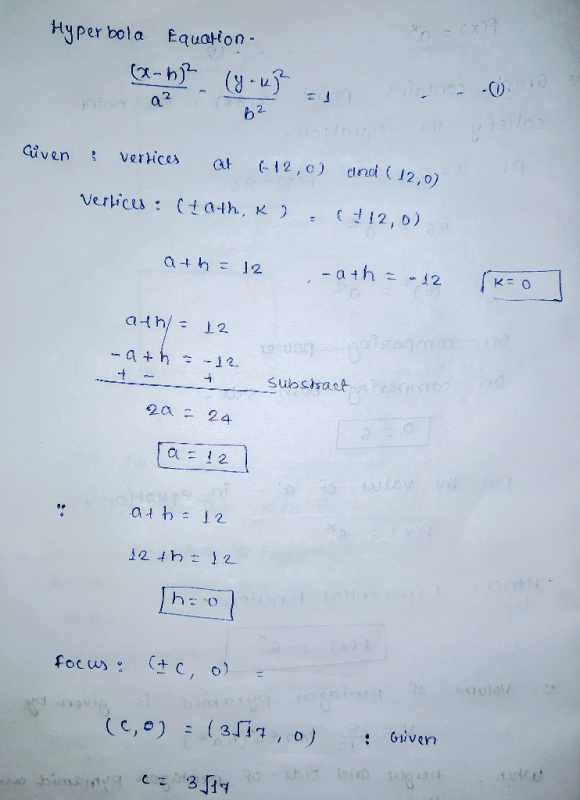 Hyperbola Equation-
(x-h)²/a² - (y-k)²/b² = 1 - - -(1)
Given : vertices at (-12,0) and (12,0)
Vertices : (±a+h, k) = (±12,0)
a+h = 12 , -a+h = -12 k=0
a+h = 12
-a+h = -12
+ - + substract
2a = 24
a = 12
∵ a+h = 12
12+h = 12
h=0
Focus : (±c, 0) =
(c,0) = (3√17, 0) : Given
c = 3√17